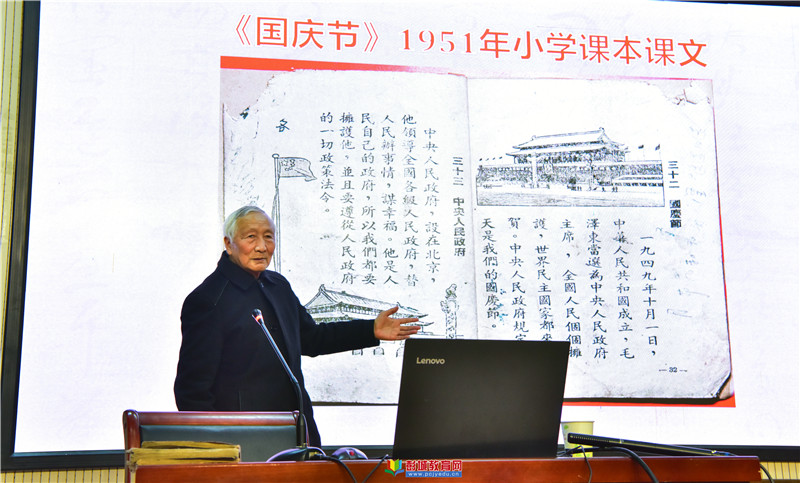 《国庆节》1951年小学课本课文
三十二 國慶節
一九四九年十月一日，
中華人民共和國成立，毛
澤東當選為中央人民政府
主席，全國人民個個擁
護，世界民主國家都來
賀。中央人民政府規定
天是我們的國慶節。
— 32 —
三十三 中央人民政府
中央人民政府，設在北京，
他領導全國各級人民政府，替
人民辦事情，謀幸福。他是人
民自己的政府，所以我們都要
擁護他，並且要遵從人民政府
的一切政策法令。
Lenovo
彭城教育网
www.pcjyedu.cn